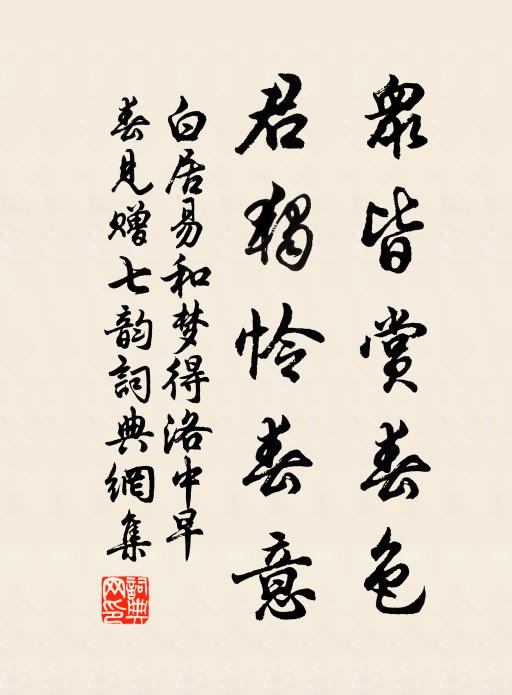 眾皆賞春色
君獨怜春意
白居易和梦得洛中早
春見赠七韵詞典網集